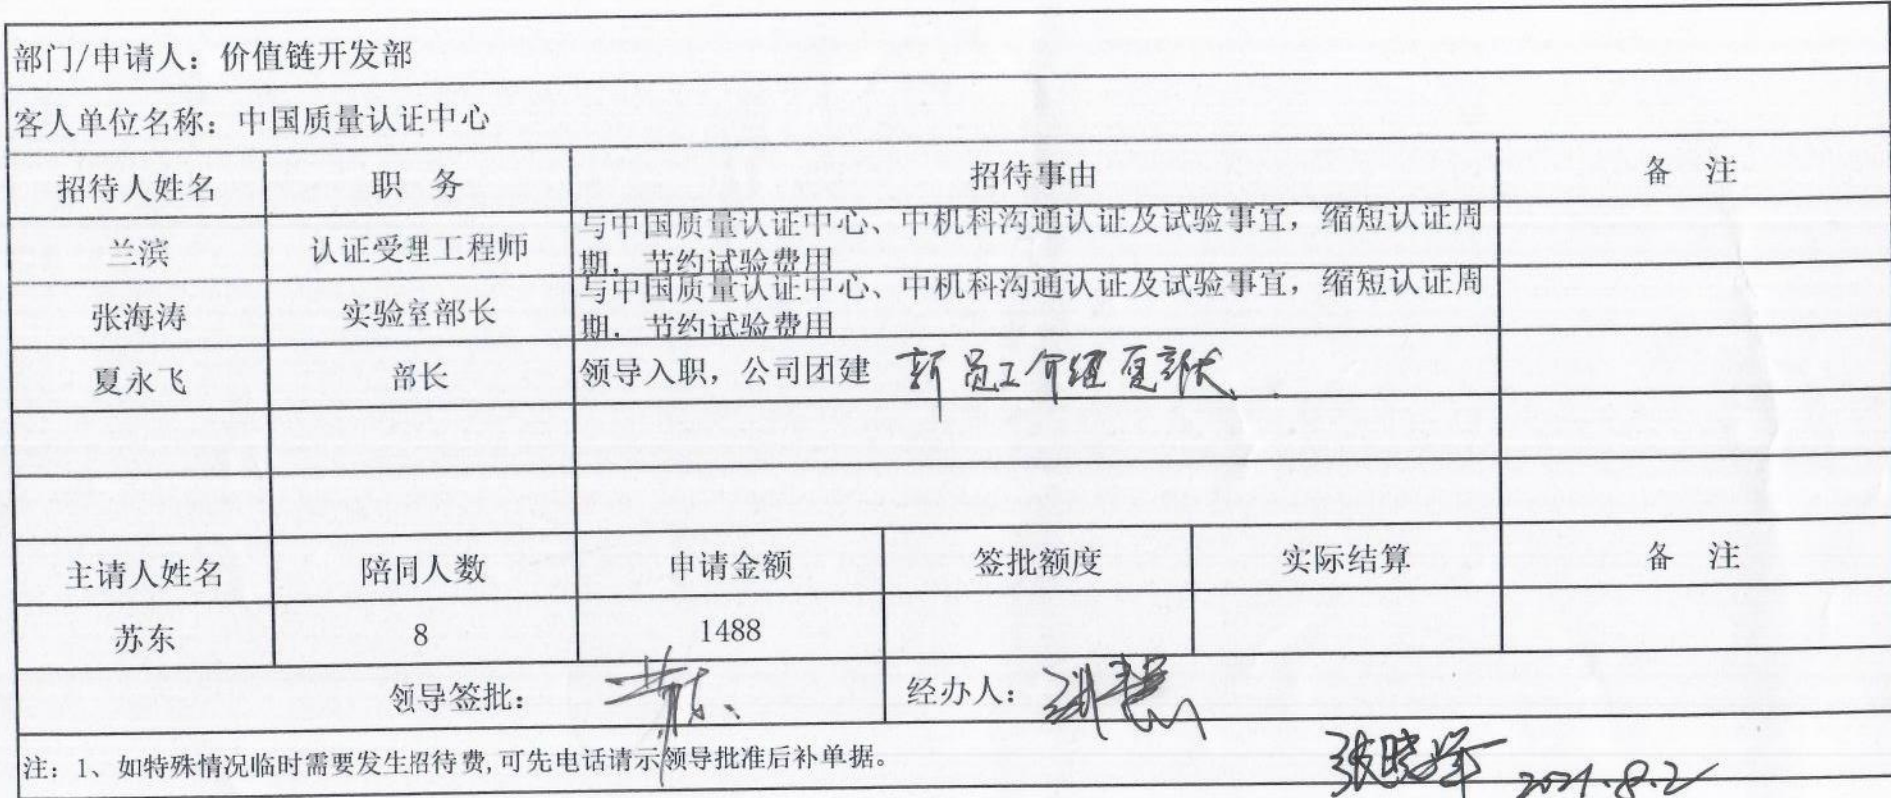 部门/申请人：价值链开发部
客人单位名称：中国质量认证中心
招待人姓名 职 务 招待事由 备 注
兰滨 认证受理工程师 与中国质量认证中心、中机科沟通认证及试验事宜，缩短认证周
期，节约试验费用
张海涛 实验室部长 与中国质量认证中心、中机科沟通认证及试验事宜，缩短认证周
期，节约试验费用
夏永飞 部长 领导入职，公司团建 新员工介绍夏部长.
主请人姓名 陪同人数 申请金额 签批额度 实际结算 备 注
苏东 8 1488
领导签批： 苏东 经办人：
注：1、如特殊情况临时需要发生招待费,可先电话请示领导批准后补单据。
2021.8.2